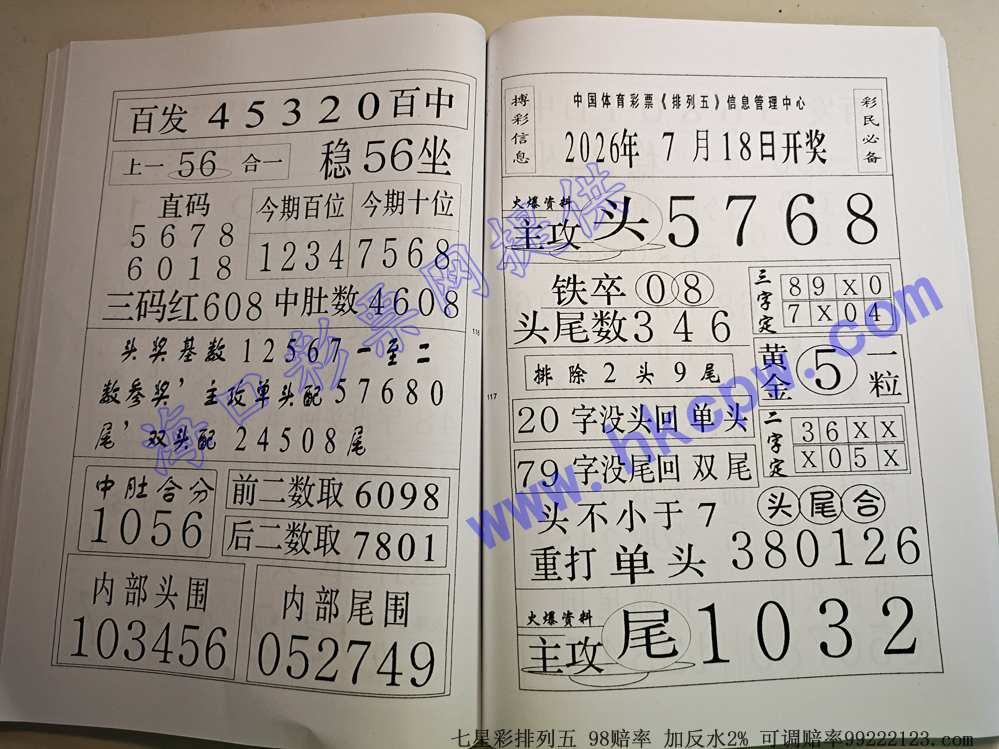 百发 45320 百中
上一 56 合一 稳 56 坐
直码
5678
6018
今期百位 今期十位
1234 7568
三码红608 中肚数 4608
头奖基数 12567 一至二
数参奖，主攻单头配57680
尾，双头配 24508 尾
中肚合分
1056
前二数取 6098
后二数取 7801
内部头围
103456
内部尾围
052749
116
117
搏彩信息
中国体育彩票《排列五》信息管理中心
2026年 7 月18日开奖
彩民必备
火爆资料
主攻 头 5768
铁卒 08
头尾数 346
排除 2 头 9 尾
三字定
89X0
7X04
黄金 5 一粒
20 字没头回 单头
79 字没尾回 双尾
二字定
36XX
X05X
头不小于 7
头尾合
重打 单头 380126
火爆资料
主攻 尾 1032
海口彩票网提供
www.hkcpw.com
七星彩排列五 98赔率 加反水2% 可调赔率99222123.com